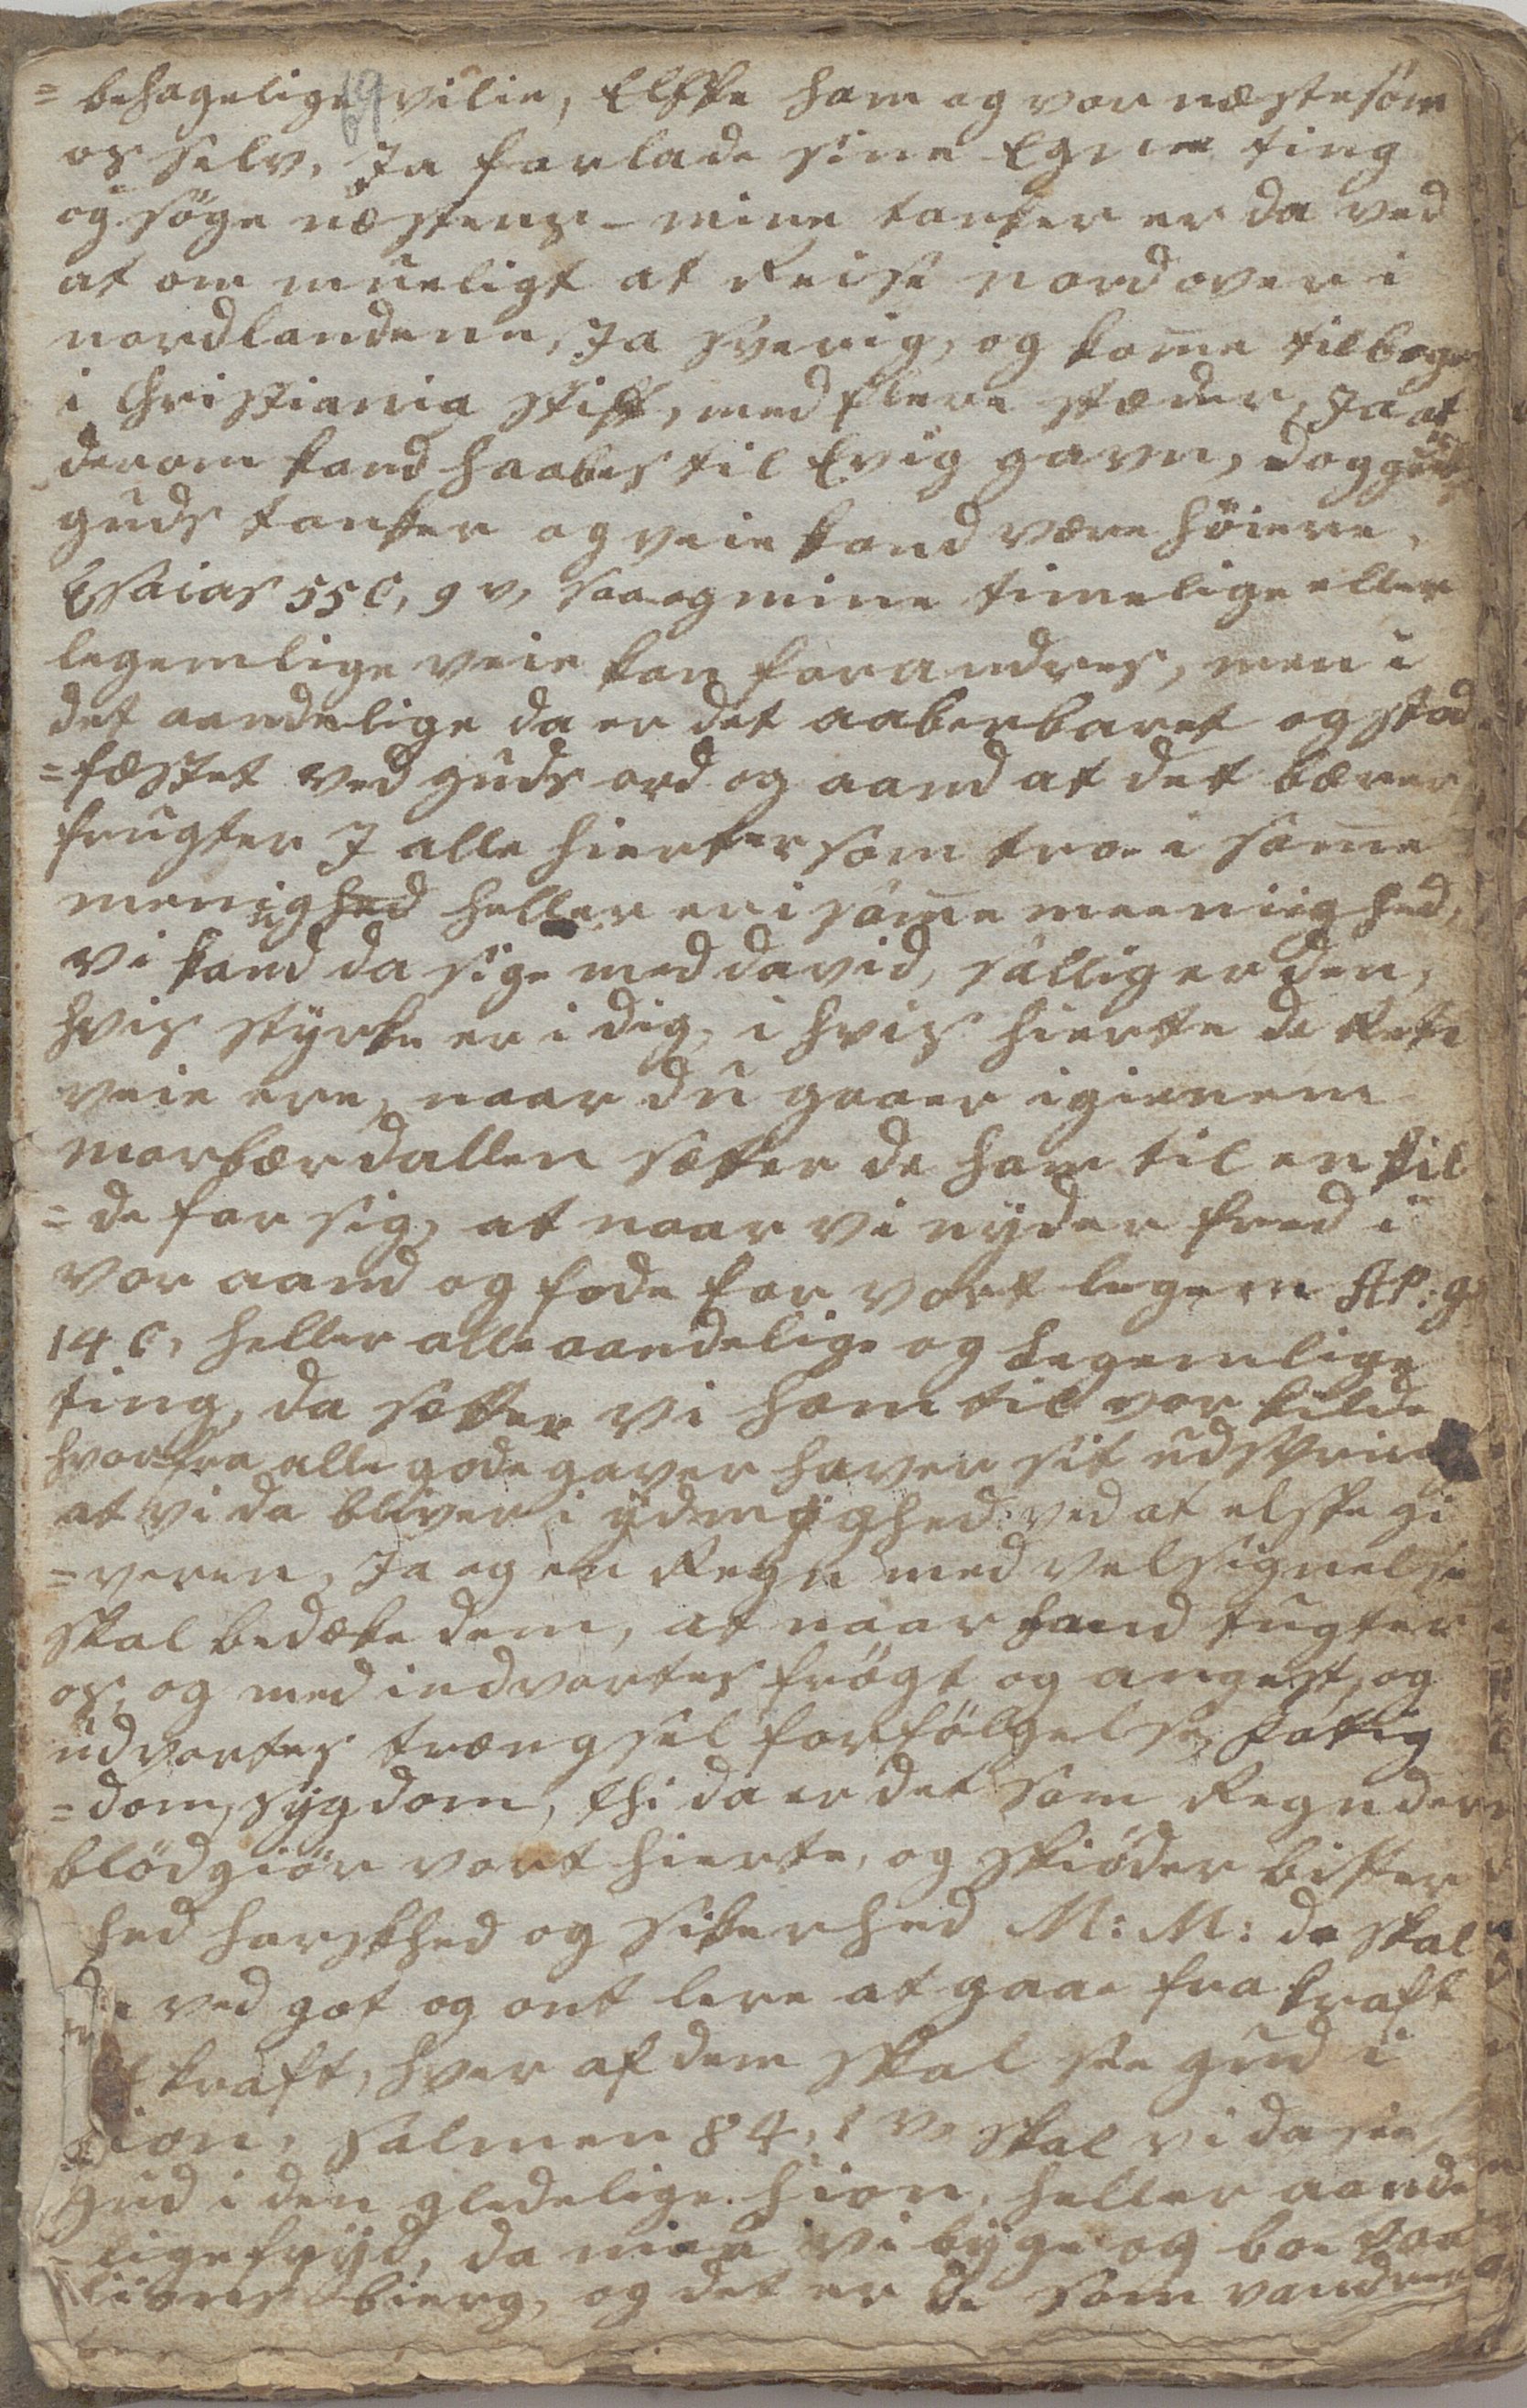 = behagelige vilie, Elske ham og vor næste som
69
os selv, Ja forlade sine Egene ting
og søge næstens - mine tanker er da ved
at om mueligt at Reise nordover i
nordlandene, Ja sverig, og kom̅e tilbage
i Christiania stift, med flere stæder, Ja at
derom kand haabes til Evig gavn, dog guds
guds tanker og veie kand være høiere,
Esaias 55 C, 9 v, saa og mine timelige eller
legemlige veie kan forandres, men i
det aandelige da er det aabenbaret og stad
= fæstet ved guds ord og aand at det bærer
frugter I alle hierter som troe i sam̅e
menighed heller er i sam̅e meenighed,
vi kand da sige med david, sallig er den,
hvis styrke er i dig, i hvis hierte de Rete
veie ere, naar du gaaer igienem
morbærdallen sætter de ham til en kil
= de for sig, at naar vi nyder fred i
vor aand og føde for vort legem AP: g
14 C, heller alle aandelige og Legemlige
ting, da setter vi ham til vor kilde
hvorfra alle gode gaver haver sit udspring
at vi da bliver i ydmyghed ved at elske gi
= veren, Ja og en Regn med velsignelse
skal bedæke dem, at naar hand tugter
os, og med indvortes frøgt og angest, og
udvortes trængsel forfølgelse, fatig
= dom, sygdom, thi da er det som Regn der
blødgiør vort hierte, og støder bitter
hed harskhed og sikerhed M: M: da skal
ved got og ont lere at gaae fra kraft
kraft, hver af dem skal see gud i
Zion, Salmen 84, 1 v, skal vi da see
gud i den gledelige Sion, heller aande
= lige fryd, da maa vi byge og boe paa
Sions bierg, og det er de som vandrer